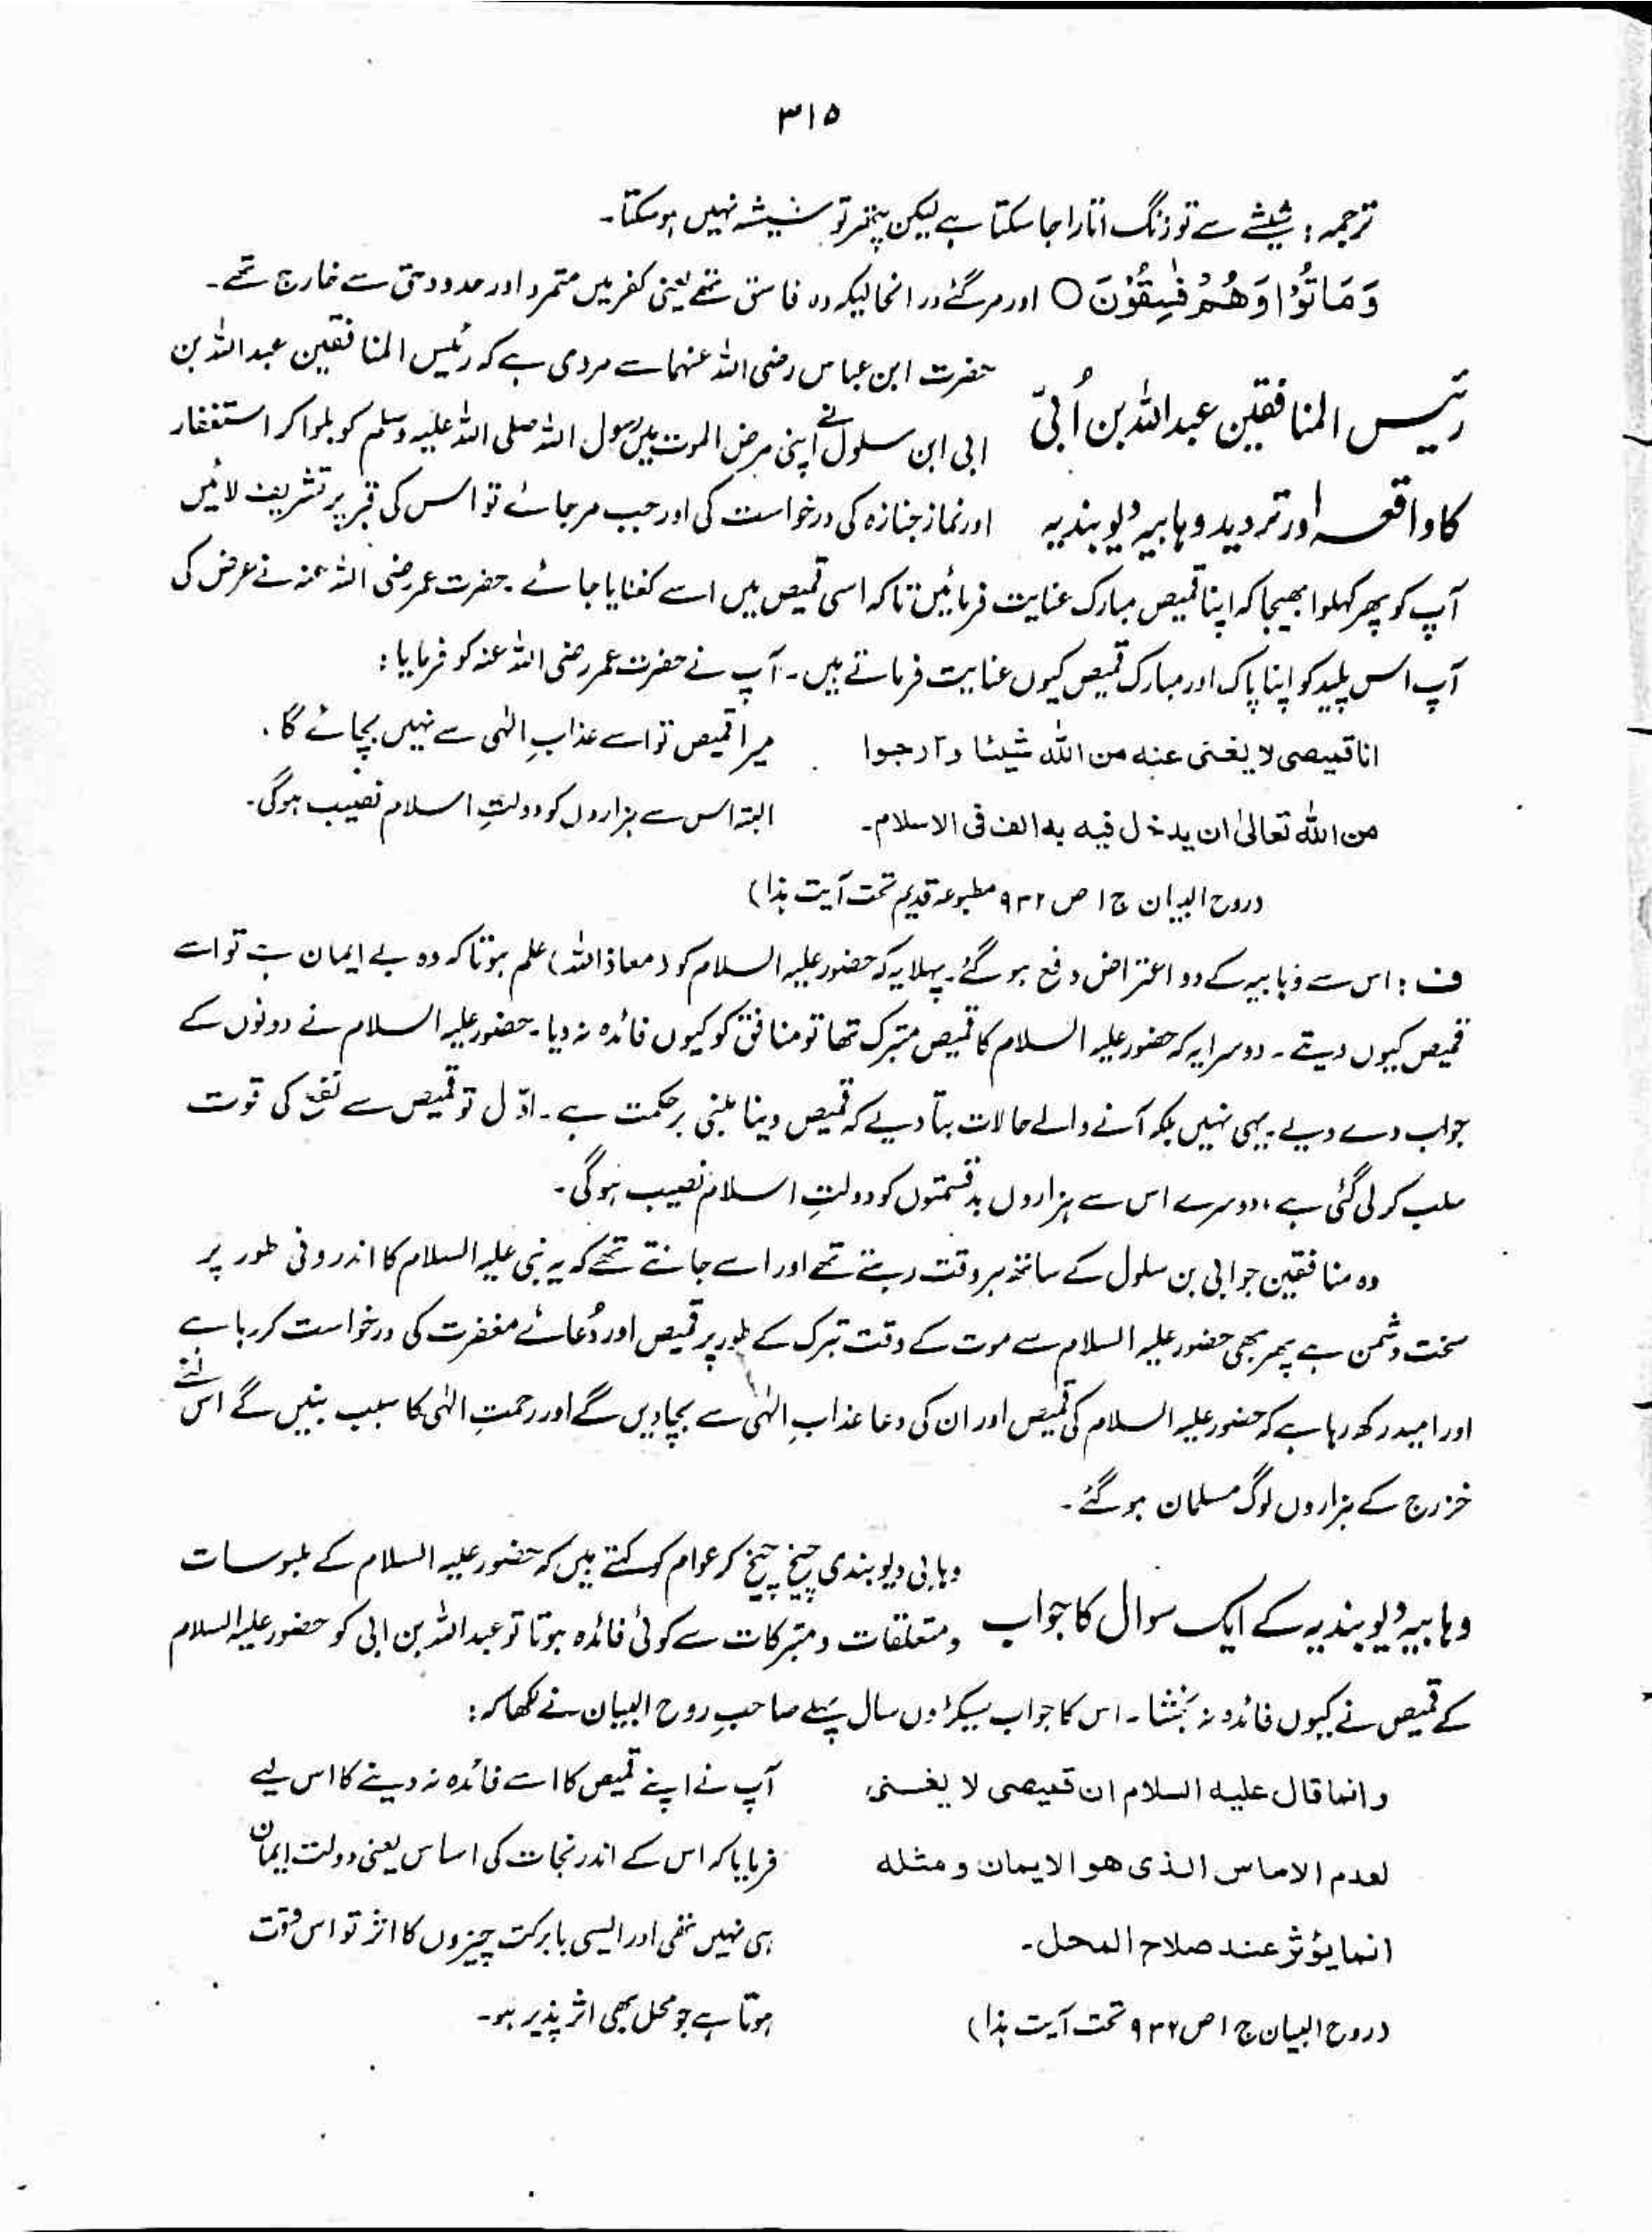 ۳۱۵
ترجمہ : شیشے سے تو زنگ اتارا جا سکتا ہے لیکن پتھر تو شیشہ نہیں ہو سکتا۔
وَمَاتُوْا وَهُمْ فٰسِقُوْنَ ○ اور مر گئے در انحالیکہ وہ فاسق تھے یعنی کفر میں متمرد اور حدود حق سے خارج تھے۔
رئیس المنافقین عبداللہ بن اُبیّ
کا واقعہ اور تردید وہابیہ دیوبندیہ
حضرت ابن عباس رضی اللہ عنہما سے مروی ہے کہ رئیس المنافقین عبداللہ بن
ابی ابن سلول نے اپنی مرض الموت میں رسول اللہ صلی اللہ علیہ وسلم کو بلوا کر استغفار
اور نماز جنازہ کی درخواست کی اور جب مر جائے تو اس کی قبر پر تشریف لائیں
آپ کو پھر کہلوا بھیجا کہ اپنا قمیص مبارک عنایت فرمائیں تاکہ اسی قمیص میں اسے کفنایا جائے ۔ حضرت عمر رضی اللہ عنہ نے عرض کی
آپ اس پلید کو اپنا پاک اور مبارک قمیص کیوں عنایت فرماتے ہیں ۔ آپ نے حضرت عمر رضی اللہ عنہ کو فرمایا :
انا قمیصی لا یغنی عنہ من اللہ شیئا و ارجوا
من اللہ تعالیٰ ان یدخل فیہ بہ الف فی الاسلام۔
میرا قمیص تو اسے عذابِ الٰہی سے نہیں بچائے گا ۔
البتہ اس سے ہزاروں کو دولتِ اسلام نصیب ہوگی۔
(روح البیان ج ۱ ص ۹۳۲ مطبوعہ قدیم تحت آیت ہذا)
ف : اس سے وہابیہ کے دو اعتراض دفع ہو گئے۔ پہلا یہ کہ حضور علیہ السلام کو (معاذ اللہ) علم ہوتا کہ وہ بے ایمان ہے تو اسے
قمیص کیوں دیتے ۔ دوسرا یہ کہ حضور علیہ السلام کا قمیص متبرک تھا تو منافق کو کیوں فائدہ نہ دیا ۔ حضور علیہ السلام نے دونوں کے
جواب دے دیے ۔ یہی نہیں بلکہ آنے والے حالات بتا دیے کہ قمیص دینا مبنی بر حکمت ہے ۔ اوّل تو قمیص سے نفع کی قوت
سلب کر لی گئی ہے ، دوسرے اس سے ہزاروں بدقسمتوں کو دولتِ اسلام نصیب ہو گی ۔
وہ منافقین جو ابی بن سلول کے ساتھ ہر وقت رہتے تھے اور اسے جانتے تھے کہ یہ نبی علیہ السلام کا اندرونی طور پر
سخت دشمن ہے پھر بھی حضور علیہ السلام سے موت کے وقت تبرک کے طور پر قمیص اور دُعائے مغفرت کی درخواست کر رہا ہے
اور امید رکھ رہا ہے کہ حضور علیہ السلام کی قمیص اور ان کی دعا عذابِ الٰہی سے بچا دیں گے اور رحمتِ الٰہی کا سبب بنیں گے اس
خزرج کے ہزاروں لوگ مسلمان ہو گئے ۔
وہابیہ دیوبندیہ کے ایک سوال کا جواب
وہابی دیوبندی چیخ چیخ کر عوام کو کہتے ہیں کہ حضور علیہ السلام کے ملبوسات
و متعلقات و متبرکات سے کوئی فائدہ ہوتا تو عبداللہ بن ابی کو حضور علیہ السلام
کے قمیص نے کیوں فائدہ نہ بخشا ۔ اس کا جواب سیکڑوں سال پہلے صاحبِ روح البیان نے لکھا کہ :
وانما قال علیہ السلام ان قمیصی لا یغنی
لعدم الاساس الذی ھو الایمان و مثلہ
انما یؤثر عند صلاح المحل۔
(روح البیان ج ۱ ص ۹۳۲ تحت آیت ہذا)
آپ نے اپنے قمیص کا اسے فائدہ نہ دینے کا اس لیے
فرمایا کہ اس کے اندر نجات کی اساس یعنی دولت ایمان
ہی نہیں تھی اور ایسی بابرکت چیزوں کا اثر تو اس وقت
ہوتا ہے جو محل بھی اثر پذیر ہو۔